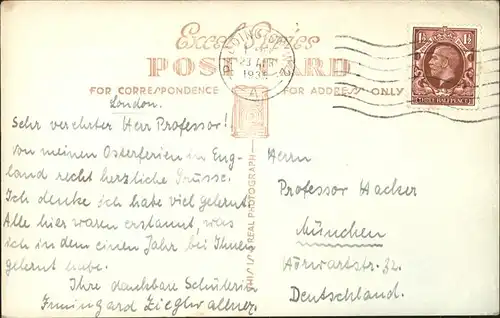 Excel Series
POST CARD
FOR CORRESPONDENCE
FOR ADDRESS ONLY
PADDINGTON
1½ 1½
THREE HALFPENCE
THIS IS A REAL PHOTOGRAPH
London.
Sehr verehrter Herr Professor!
von meinen Osterferien in Eng-
land recht herzliche Grüsse.
Ich denke ich habe viel gelernt.
Alle hier waren erstaunt, was
ich in dem einen Jahr bei Ihnen
gelernt habe.
Ihre dankbare Schülerin
Irmingard Zieglwallner.
Herrn
Professor Hacker
München
Hörwartstr. 32.
Deutschland.